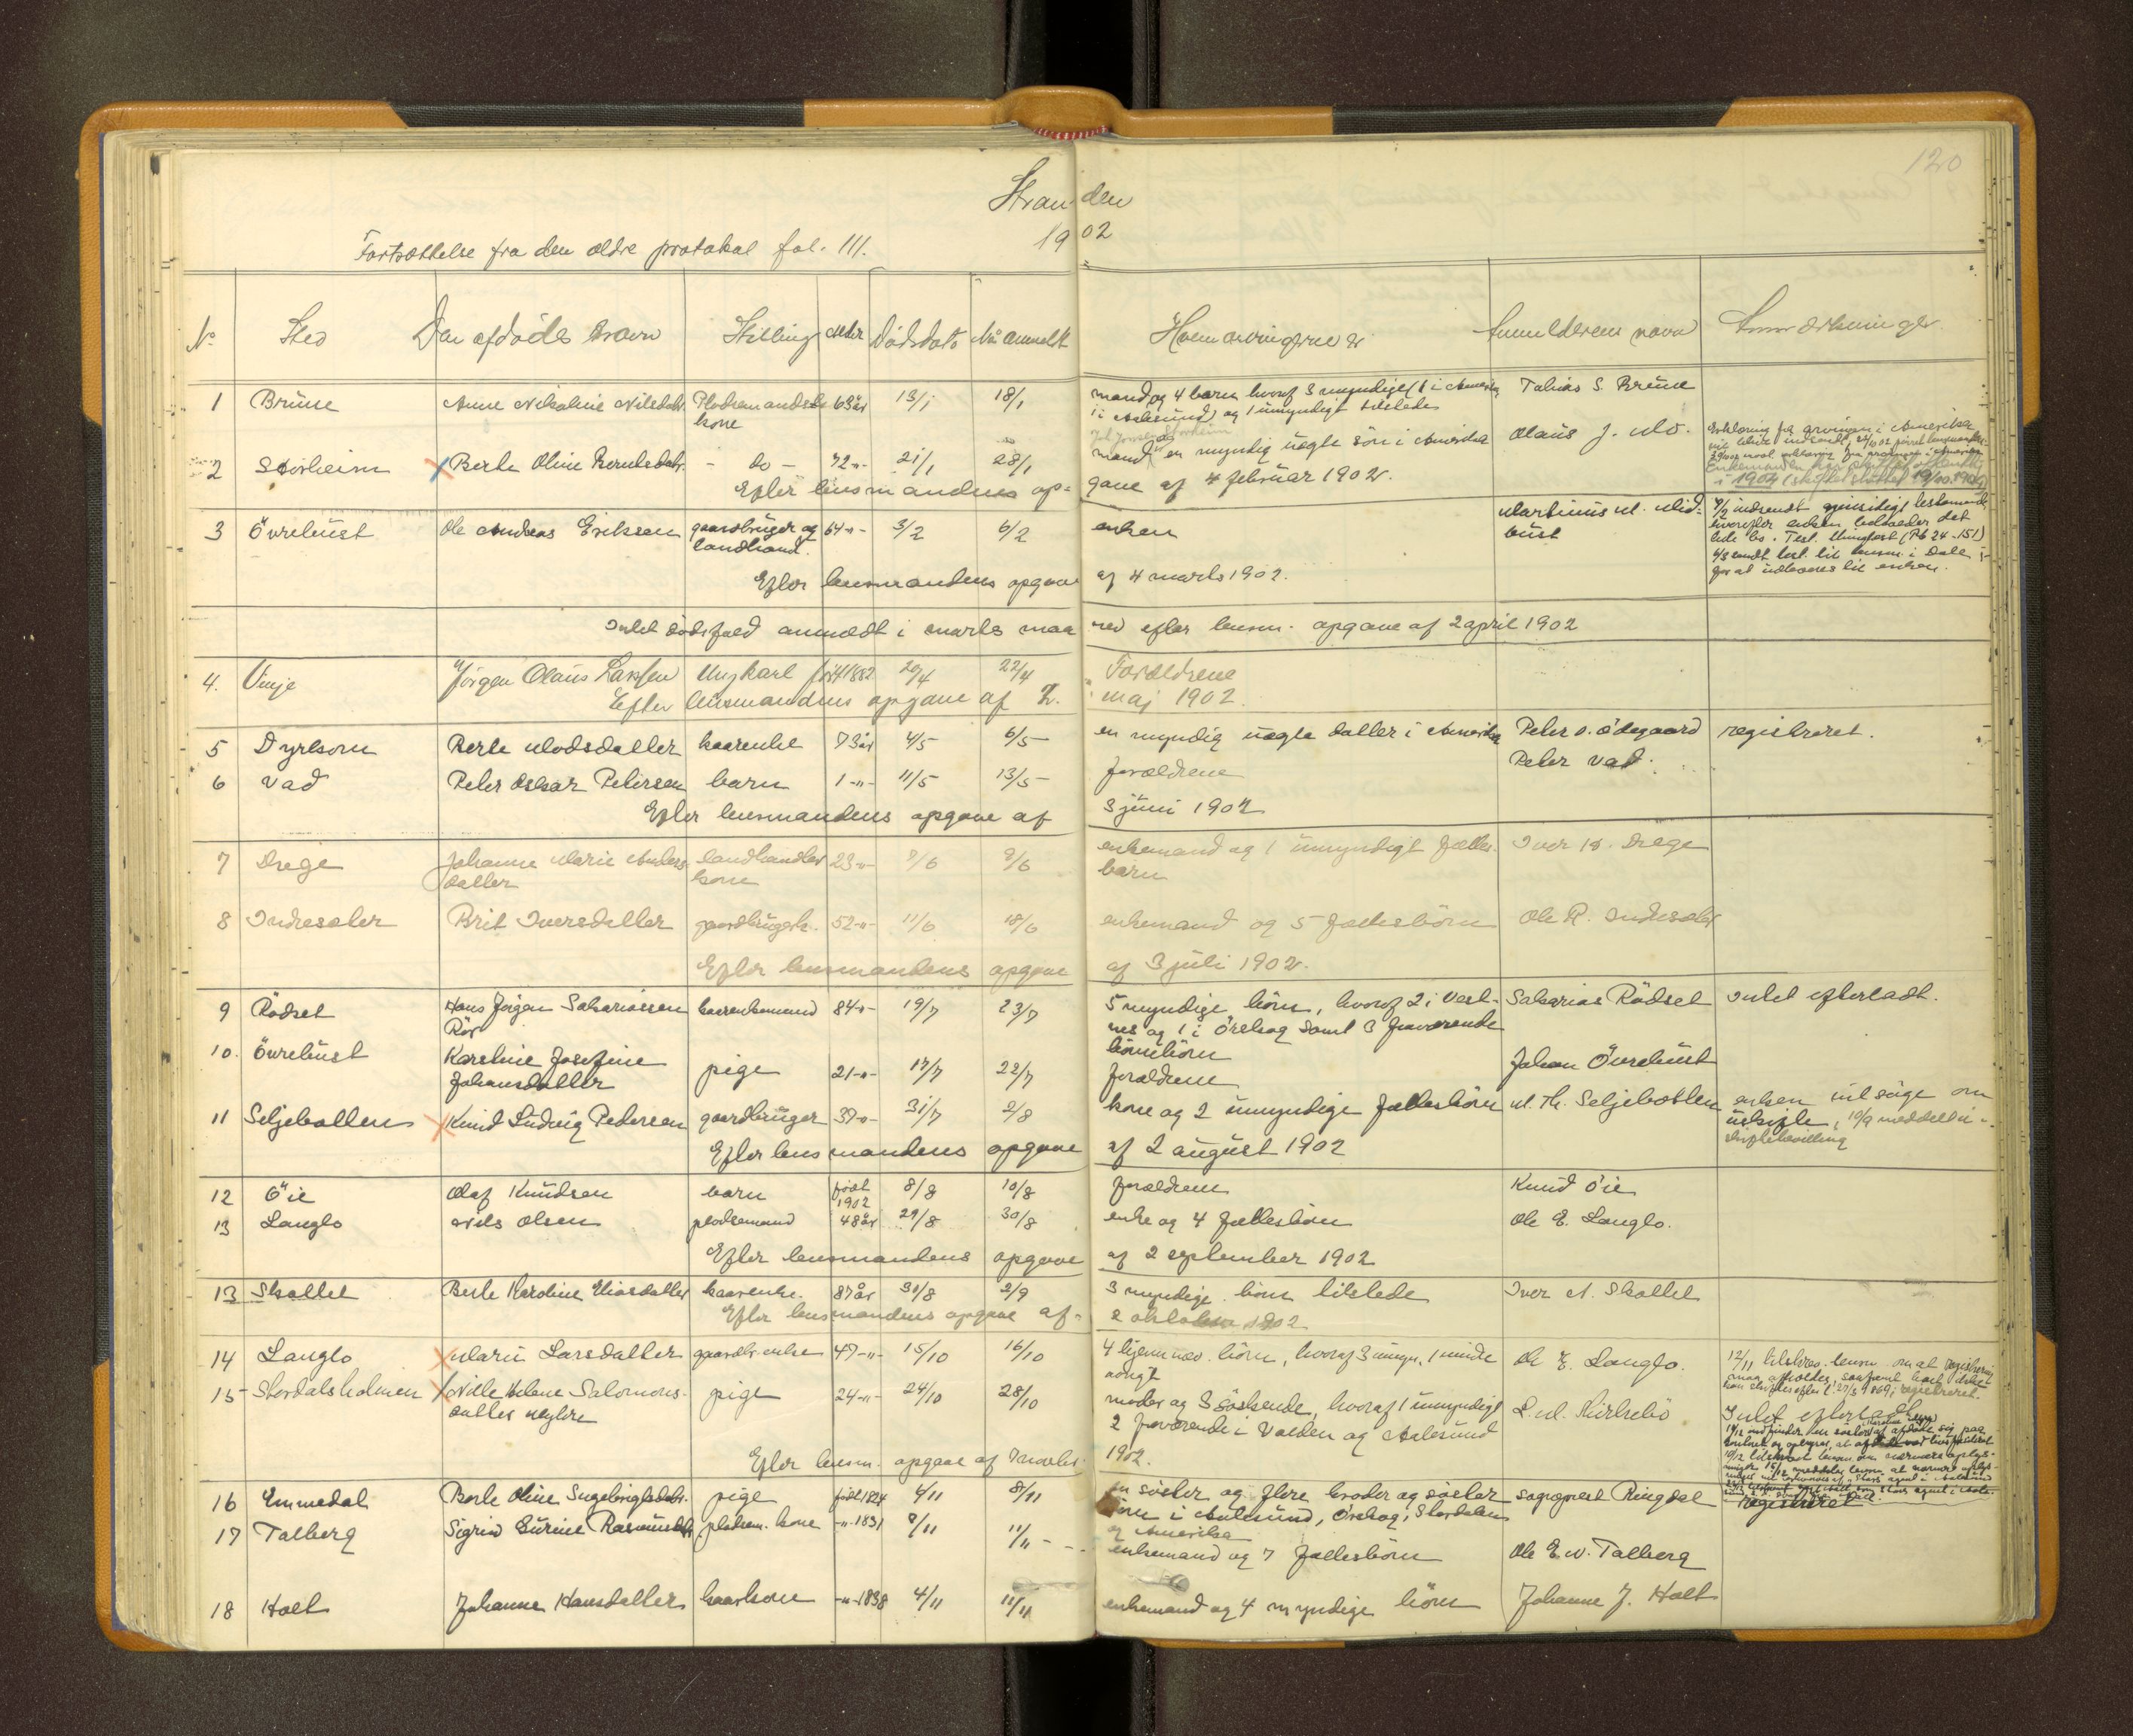 120
Stranden
1902
Fortsættelse fra den ældre protokol fol. 111.
No Sted Den afdødes navn Stilling Alder Dødsdato Naar anmeldt Hvem arvingerne er Anmelderens navn Anmærkninger
1 Brune Anne Nikoline Nilsdatr. Pladsemandsk. 63 år 13/1 18/1 mand og 4 børn hvoraf 3 myndige (1 i Amerika Tobias S. Brune
kone 1 i Aalesund) og 1 umyndigt tilstede
2 Storheim Berte Oline Berntsdatr. - do - 72 -"- 21/1 28/1 mand og en myndig uægte søn i Amerika Olaus J.
Efter lensmandens opgave af 4 februar 1902.
i 1904
3 Övrebust Ole Andreas Eriksen gaardbruger og 64 -"- 3/2 6/2 enken Martinus M. Mid- indsendt gjensidigt testamente
landhand. bust hvorefter enken beholder det
hele bo. Test. thinglæst (Pb 24-151)
for at udleveres til enken.
Efter lensmandens opgave af 4 marts 1902.
Intet dødsfald anmeldt i marts maaned efter lensm. opgave af 2 april 1902
4. Vinje Jörgen Olaus Larssen Ungkarl född 1882 20/4 22/4 Forældrene
Efter lensmandens opgave af 2. maj 1902.
5 Dyrkorn Berte Madsdatter kaarenke 73 år 4/5 6/5 en myndig uægte datter i Amerika Peter O. Ödegaard registreret.
6 Vad Peter Oskar Petersen barn 1 -"- 11/5 13/5 forældrene Peter Vad.
Efter lensmandens opgave af 3 juni 1902
7 Drege Johanne Marie Anders landhandler 23 -"- 7/6 9/6 enkemand og 1 umyndigt fælles- Iver K. Drege
datter kone barn
8 Indreseter Brit Iversdatter gaardbrugerk. 52 -"- 11/6 18/6 enkemand og 5 fællesbörn Ole R. Indreseter
Efter lensmandens opgave af 3 juli 1902.
9 Rödset Hans Jörgen Sakariassen kaarenkemand 84 -"- 19/7 23/7 5 myndige börn, hvoraf 2 i Vest- Sakarias Rödset Intet efterladt.
nes og 1 i Örskog samt 3 fraværende
börnebörn
10. Övrebust Karoline Josefine pige 21 -"- 17/7 22/7 forældrene Johan Övrebust
Johansdatter
11 Seljebotten Knud Ludvig Pedersen gaardbruger 37 -"- 31/7 2/8 kone og 2 umyndige fællesbörn M. Th. Seljebotten enken vil söge om
uskifte, 10/9 meddelt u-
skiftebevilling
Efter lensmandens opgave af 2 august 1902
12 Öie Olaf Knudsen barn födt 1902 8/8 10/8 forældrene Knud Öie
13 Langlo Nils Olsen pladsemand 48 år 29/8 30/8 enke og 4 fællesbörn Ole E. Langlo.
Efter lensmandens opgave af 2 september 1902
13 Skottet Berte Karoline Eliasdatter kaarenke. 87 år 31/8 2/9 3 myndige börn tilstede Iver N. Skottet
Efter lensmandens opgave af 2 oktober 1902
14 Langlo Marie Larsdatter gaardbr. enke 47 -"- 15/10 16/10 4 hjemmev. börn, hvoraf 3 umyn., 1 minde- Ole E. Langlo.
aarigt
15 Stordalsholmen Nille Helene Salomons- pige 24 -"- 24/10 28/10 moder og 3 söskende, hvoraf 1 umyndigt L. M. Kirkebö Intet efterladt
datter 2 fraværende i Valden og Aalesund
registreret
Efter lensm. opgave af 1902.
16 Emmedal Berte Oline Ingebrigtsdatr. pige födt 1824 4/11 8/11 en söster og flere broder og söster Sogneprest Ringdal
börn i Aalesund, Örskog, Stordalen
og Amerika
17 Talberg Sigrid Surine Rasmusdtr pladsem. kone -"- 1831 9/11 11/11 enkemand og 7 fællesbörn Ole E. N. Talberg
18 Holt Johanne Hansdatter kaarkone -"- 1838 4/11 11/11 enkemand og 4 myndige börn Johanne J. Holt